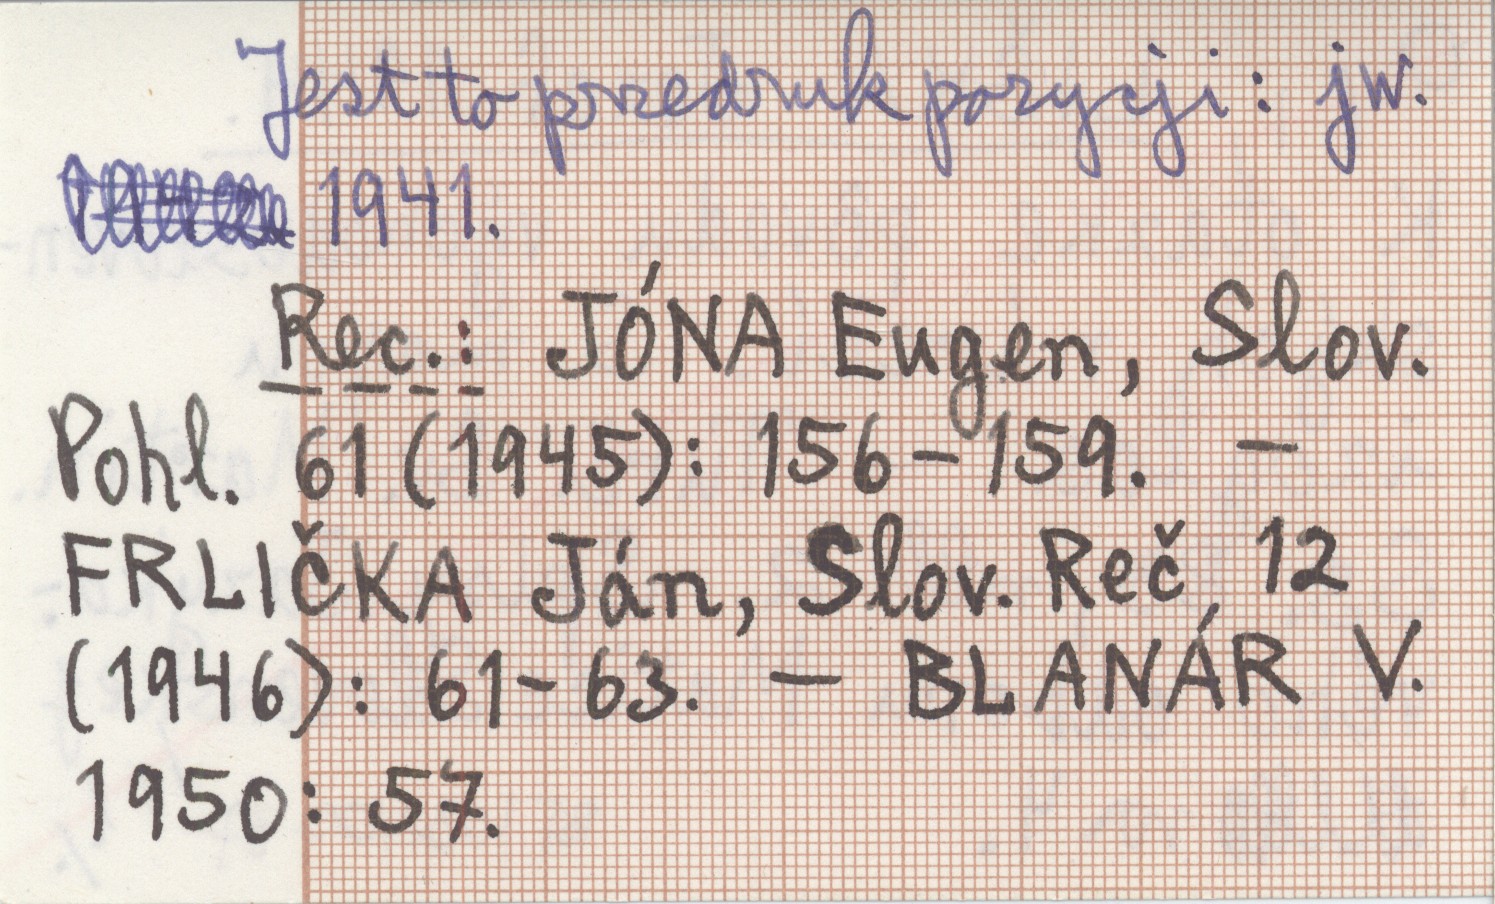 Jest to przedruk pozycji: jw.
1941.
Rec.: JÓNA Eugen, Slov.
Pohl. 61 (1945): 156–159. –
FRLIČKA Ján, Slov. Reč 12
(1946): 61–63. – BLANÁR V.
1950: 57.